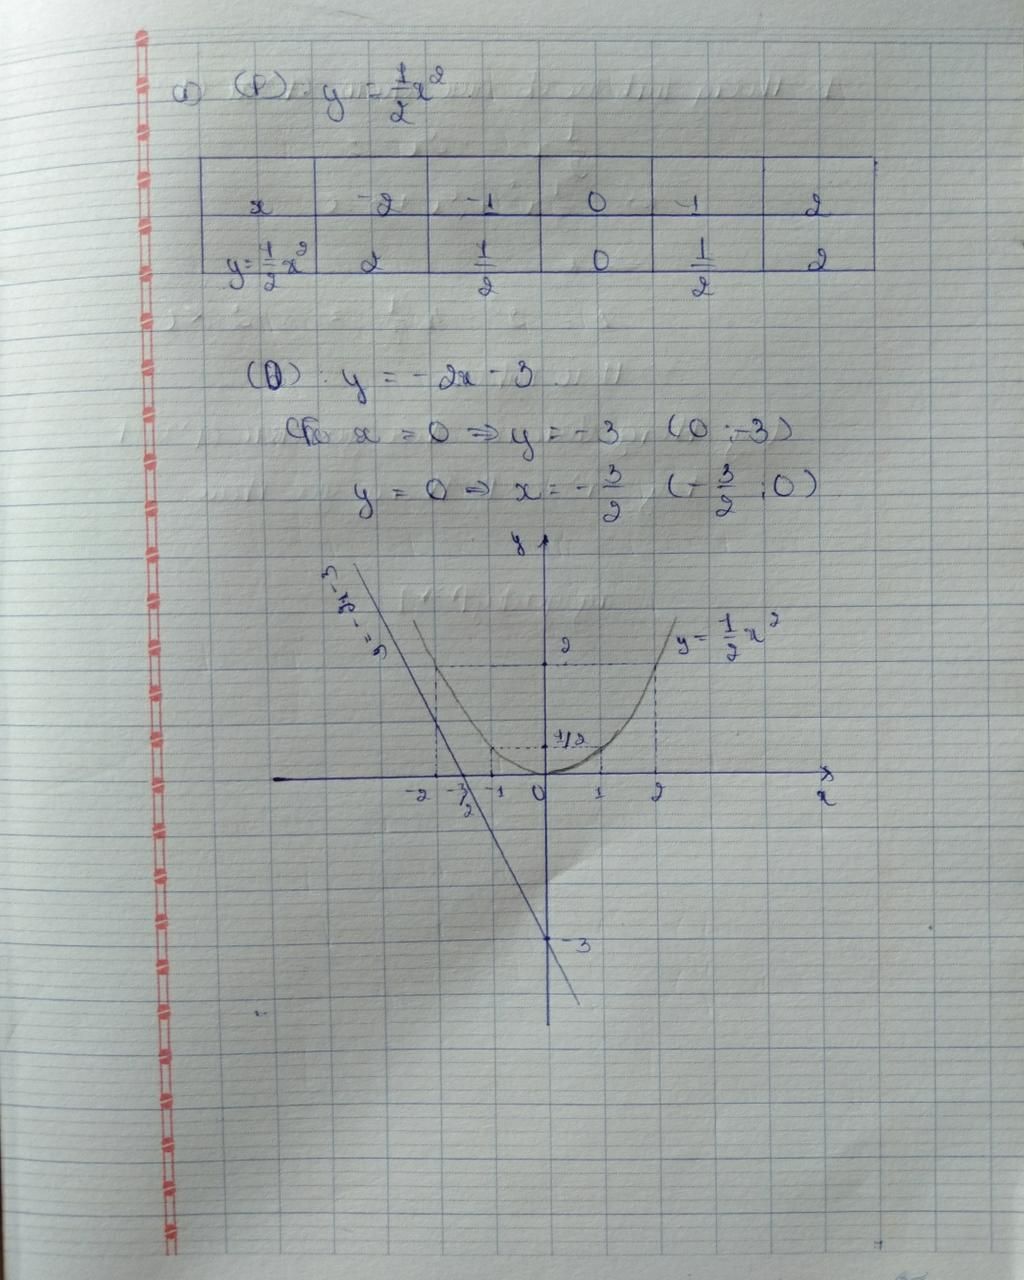 a) (P): y = 1/2 x²
x -2 -1 0 1 2
y = 1/2 x² 2 1/2 0 1/2 2
(D): y = -2x - 3
Cho x = 0 ⇒ y = -3 (0 ; -3)
y = 0 ⇒ x = -3/2 (-3/2 ; 0)
y
y = -2x - 3
2
y = 1/2 x²
1/2
-2 -3/2 -1 0 1 2 x
-3